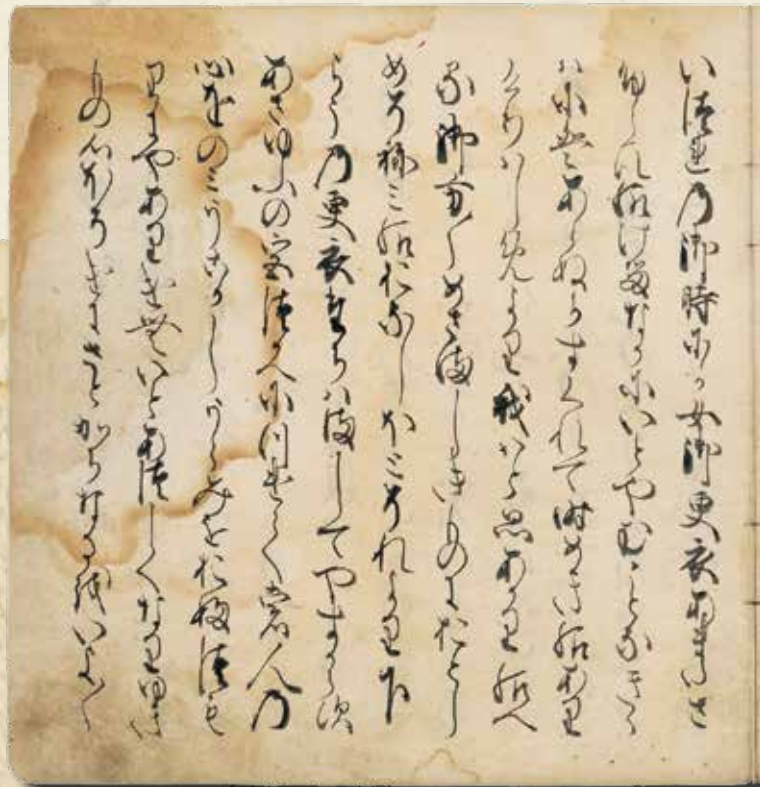 いつれの御時にか女御更衣あまたさ
ふらひ給けるなかにいとやむことなきゝ
はにはあらぬかすくれて時めき給あり
けりはしめより我はと思あかり給へ
る御方〱めさましきものにおとし
めそねみ給おなしほとそれより下
らうの更衣たちはましてやすからす
あさゆふの宮つかへにつけても人の
心をのみうこかしうらみをおふつも
りにやありけむいとあつしくなりゆき
もの心ほそけにさとかちなるをいよ〱